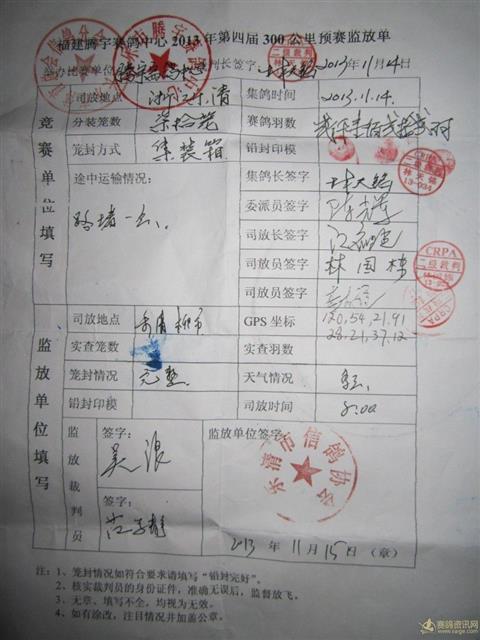 福建腾宇赛鸽中心2013年第四届300公里预赛监放单
举办比赛单位 裁判长签字: 林天銘 2013年11月14日
竞赛单位填写
司放地点 浙江乐清 集鸽时间 2013.11.14.
分装笼数 柒拾笼 赛鸽羽数
笼封方式 集装箱 铅封印模
途中运输情况: 集鸽长签字 林天銘
委派员签字
司放长签字
司放员签字 林国栋
司放员签字
监放单位填写
司放地点 乐清柳市 GPS 坐标 120,54,21.91
28,21,37.12
实查笼数 实查羽数
笼封情况 完整 天气情况
铅封印模 司放时间 8:00
监放裁判员
签字: 监放单位签字:
吴浪
签字:
乐清市信鸽协会
2013年11月15日(章)
CRPA
二级裁判
注: 1、笼封情况如符合要求请填写“铅封完好”。
2、核实裁判员的身份证件,准确无误后,监督放飞。
3、无章、填写不全,均视为无效。
4、如有涂改,注目情况并加盖公章。
赛鸽资讯网
www.saige.com